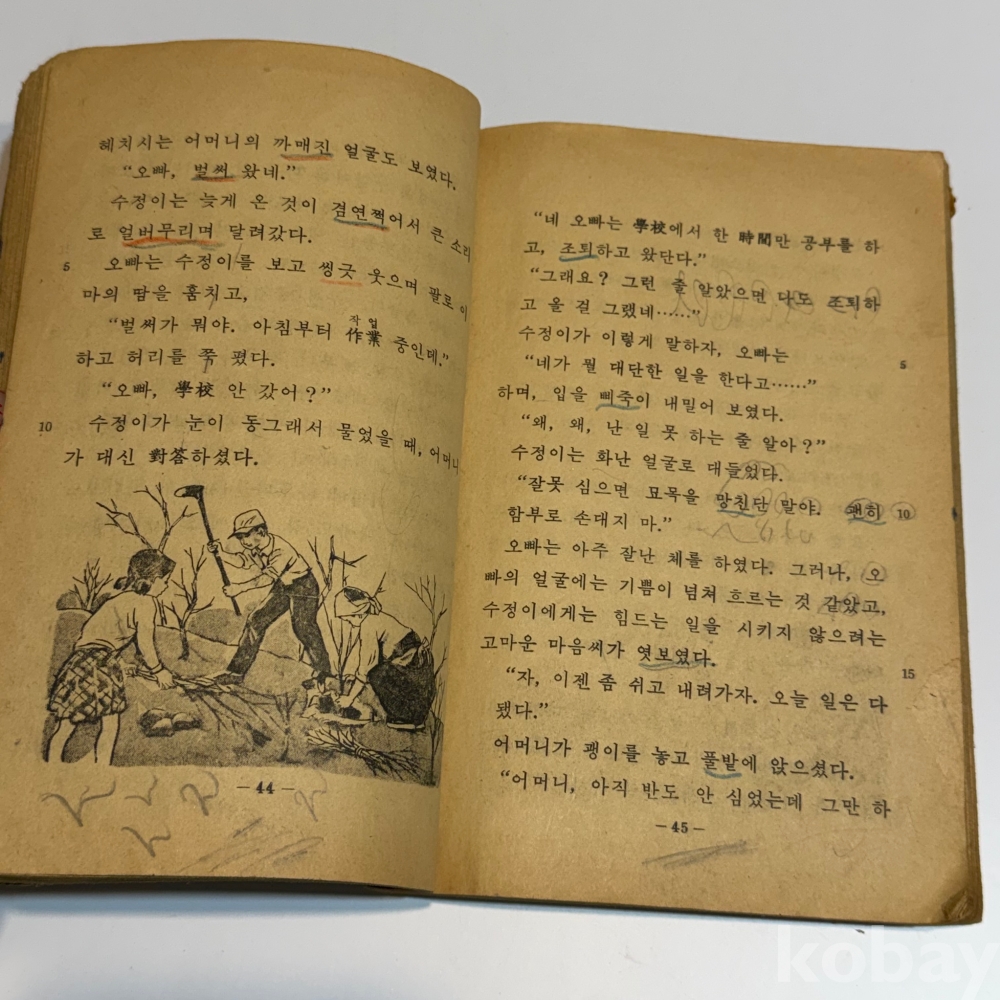 헤치시는 어머니의 까매진 얼굴도 보였다.
“오빠, 벌써 왔네.”
수정이는 늦게 온 것이 겸연쩍어서 큰 소리
로 얼버무리며 달려갔다.
5 오빠는 수정이를 보고 씽긋 웃으며 팔로 이
마의 땀을 훔치고,
작업
“벌써가 뭐야. 아침부터 作業 중인데.”
하고 허리를 쭉 폈다.
“오빠, 學校 안 갔어?”
10 수정이가 눈이 동그래서 물었을 때, 어머니
가 대신 對答하셨다.
— 44 —
“네 오빠는 學校에서 한 時間만 공부를 하
고, 조퇴하고 왔단다.”
“그래요? 그런 줄 알았으면 나도 조퇴하
고 올 걸 그랬네……”
수정이가 이렇게 말하자, 오빠는 5
“네가 뭘 대단한 일을 한다고……”
하며, 입을 삐죽이 내밀어 보였다.
“왜, 왜, 난 일 못 하는 줄 알아?”
수정이는 화난 얼굴로 대들었다.
“잘못 심으면 묘목을 망친단 말야. 괜히 10
함부로 손대지 마.”
오빠는 아주 잘난 체를 하였다. 그러나, 오
빠의 얼굴에는 기쁨이 넘쳐 흐르는 것 같았고,
수정이에게는 힘드는 일을 시키지 않으려는
고마운 마음씨가 엿보였다. 15
“자, 이젠 좀 쉬고 내려가자. 오늘 일은 다
됐다.”
어머니가 괭이를 놓고 풀밭에 앉으셨다.
“어머니, 아직 반도 안 심었는데 그만 하
— 45 —
kobay